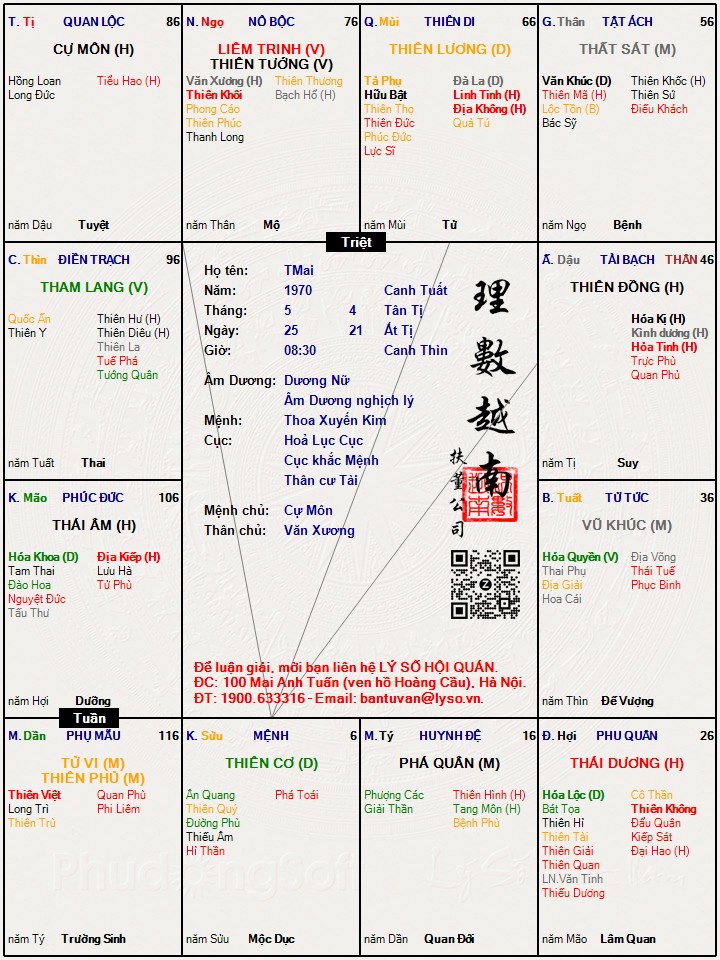 T. Tị QUAN LỘC 86
CỰ MÔN (H)
Hồng Loan Tiểu Hao (H)
Long Đức
năm Dậu Tuyệt
N. Ngọ NÔ BỘC 76
LIÊM TRINH (V)
THIÊN TƯỚNG (V)
Văn Xương (H) Thiên Thương
Thiên Khôi Bạch Hổ (H)
Phong Cáo
Thiên Phúc
Thanh Long
năm Thân Mộ
Q. Mùi THIÊN DI 66
THIÊN LƯƠNG (D)
Tả Phụ Đà La (D)
Hữu Bật Linh Tinh (H)
Thiên Thọ Địa Không (H)
Thiên Đức Quả Tú
Phúc Đức
Lực Sĩ
năm Mùi Tử
G. Thân TẬT ÁCH 56
THẤT SÁT (M)
Văn Khúc (D) Thiên Khốc (H)
Thiên Mã (H) Thiên Sứ
Lộc Tồn (B) Điếu Khách
Bác Sỹ
năm Ngọ Bệnh
Triệt
C. Thìn ĐIỀN TRẠCH 96
THAM LANG (V)
Quốc Ấn Thiên Hư (H)
Thiên Y Thiên Diêu (H)
Thiên La
Tuế Phá
Tướng Quân
năm Tuất Thai
Họ tên: TMai
Năm: 1970 Canh Tuất
Tháng: 5 4 Tân Tị
Ngày: 25 21 Ất Tị
Giờ: 08:30 Canh Thìn
Âm Dương: Dương Nữ
Âm Dương nghịch lý
Mệnh: Thoa Xuyến Kim
Cục: Hoả Lục Cục
Cục khắc Mệnh
Thân cư Tài
Mệnh chủ: Cự Môn
Thân chủ: Văn Xương
理數越南
扶董公司
Để luận giải, mời bạn liên hệ LÝ SỐ HỘI QUÁN.
ĐC: 100 Mai Anh Tuấn (ven hồ Hoàng Cầu), Hà Nội.
ĐT: 1900.633316 - Email: bantuvan@lyso.vn.
Ấ. Dậu TÀI BẠCH THÂN 46
THIÊN ĐỒNG (H)
Hóa Kị (H)
Kình dương (H)
Hỏa Tinh (H)
Trực Phù
Quan Phủ
năm Tị Suy
K. Mão PHÚC ĐỨC 106
THÁI ÂM (H)
Hóa Khoa (D) Địa Kiếp (H)
Tam Thai Lưu Hà
Đào Hoa Tử Phù
Nguyệt Đức
Tấu Thư
năm Hợi Dưỡng
B. Tuất TỬ TỨC 36
VŨ KHÚC (M)
Hóa Quyền (V) Địa Võng
Thai Phụ Thái Tuế
Địa Giải Phục Binh
Hoa Cái
năm Thìn Đế Vượng
Tuần
M. Dần PHỤ MẪU 116
TỬ VI (M)
THIÊN PHỦ (M)
Thiên Việt Quan Phù
Long Trì Phi Liêm
Thiên Trù
năm Tý Trường Sinh
K. Sửu MỆNH 6
THIÊN CƠ (D)
Ân Quang Phá Toái
Thiên Quý
Đường Phù
Thiếu Âm
Hỉ Thần
năm Sửu Mộc Dục
M. Tý HUYNH ĐỆ 16
PHÁ QUÂN (M)
Phượng Các Thiên Hình (H)
Giải Thần Tang Môn (H)
Bệnh Phù
năm Dần Quan Đới
Đ. Hợi PHU QUÂN 26
THÁI DƯƠNG (H)
Hóa Lộc (D) Cô Thần
Bát Tọa Thiên Không
Thiên Hỉ Đẩu Quân
Thiên Tài Kiếp Sát
Thiên Giải Đại Hao (H)
Thiên Quan
LN.Văn Tinh
Thiếu Dương
năm Mão Lâm Quan